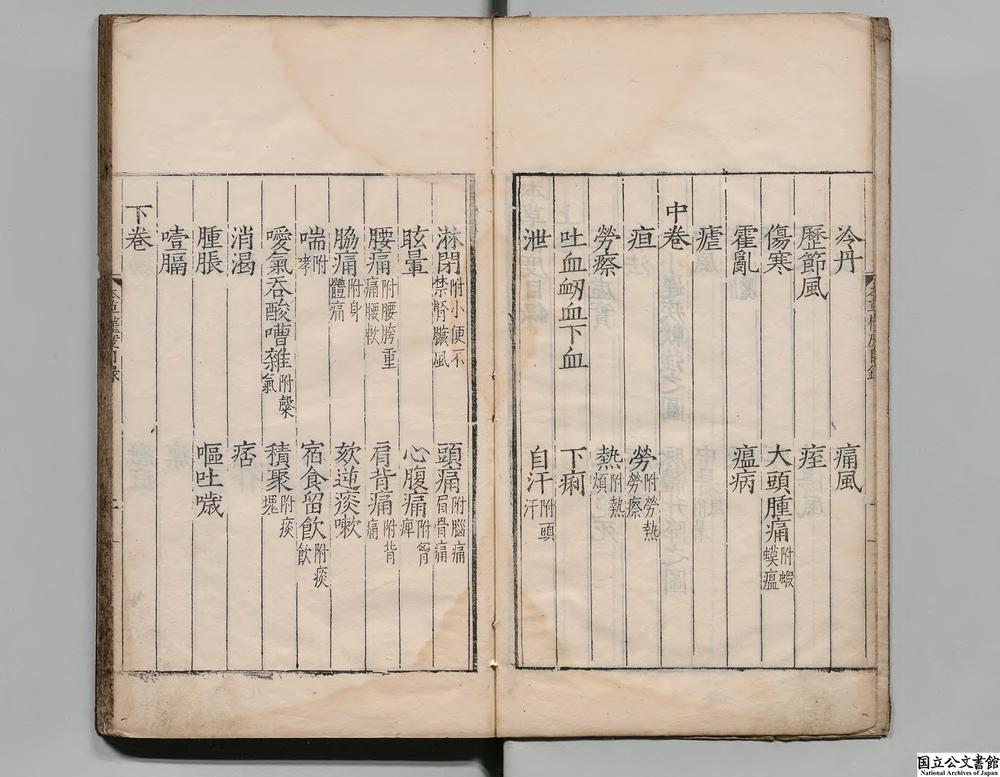 冷丹 痛風
歷節風 痓
傷寒 大頭腫痛附蝦蟆瘟
霍亂 瘟病
瘧
中卷
疸 勞附勞熱勞瘵
勞瘵 熱附熱煩
吐血衂血下血 下痢
泄 自汗附頭汗
淋閉附小便不禁腎臟風 頭痛附腦痛眉骨痛
眩暈 心腹痛附胷痺
腰痛附腰胯重痛腰軟 肩背痛附背痛
脇痛附身體痛 欬逆痰嗽
喘附哮 宿食留飲附痰飲
噯氣吞酸嘈雜附氣 積聚附痰塊
消渴 痞
腫脹 嘔吐噦
噎膈
下卷
国立公文書館
National Archives of Japan